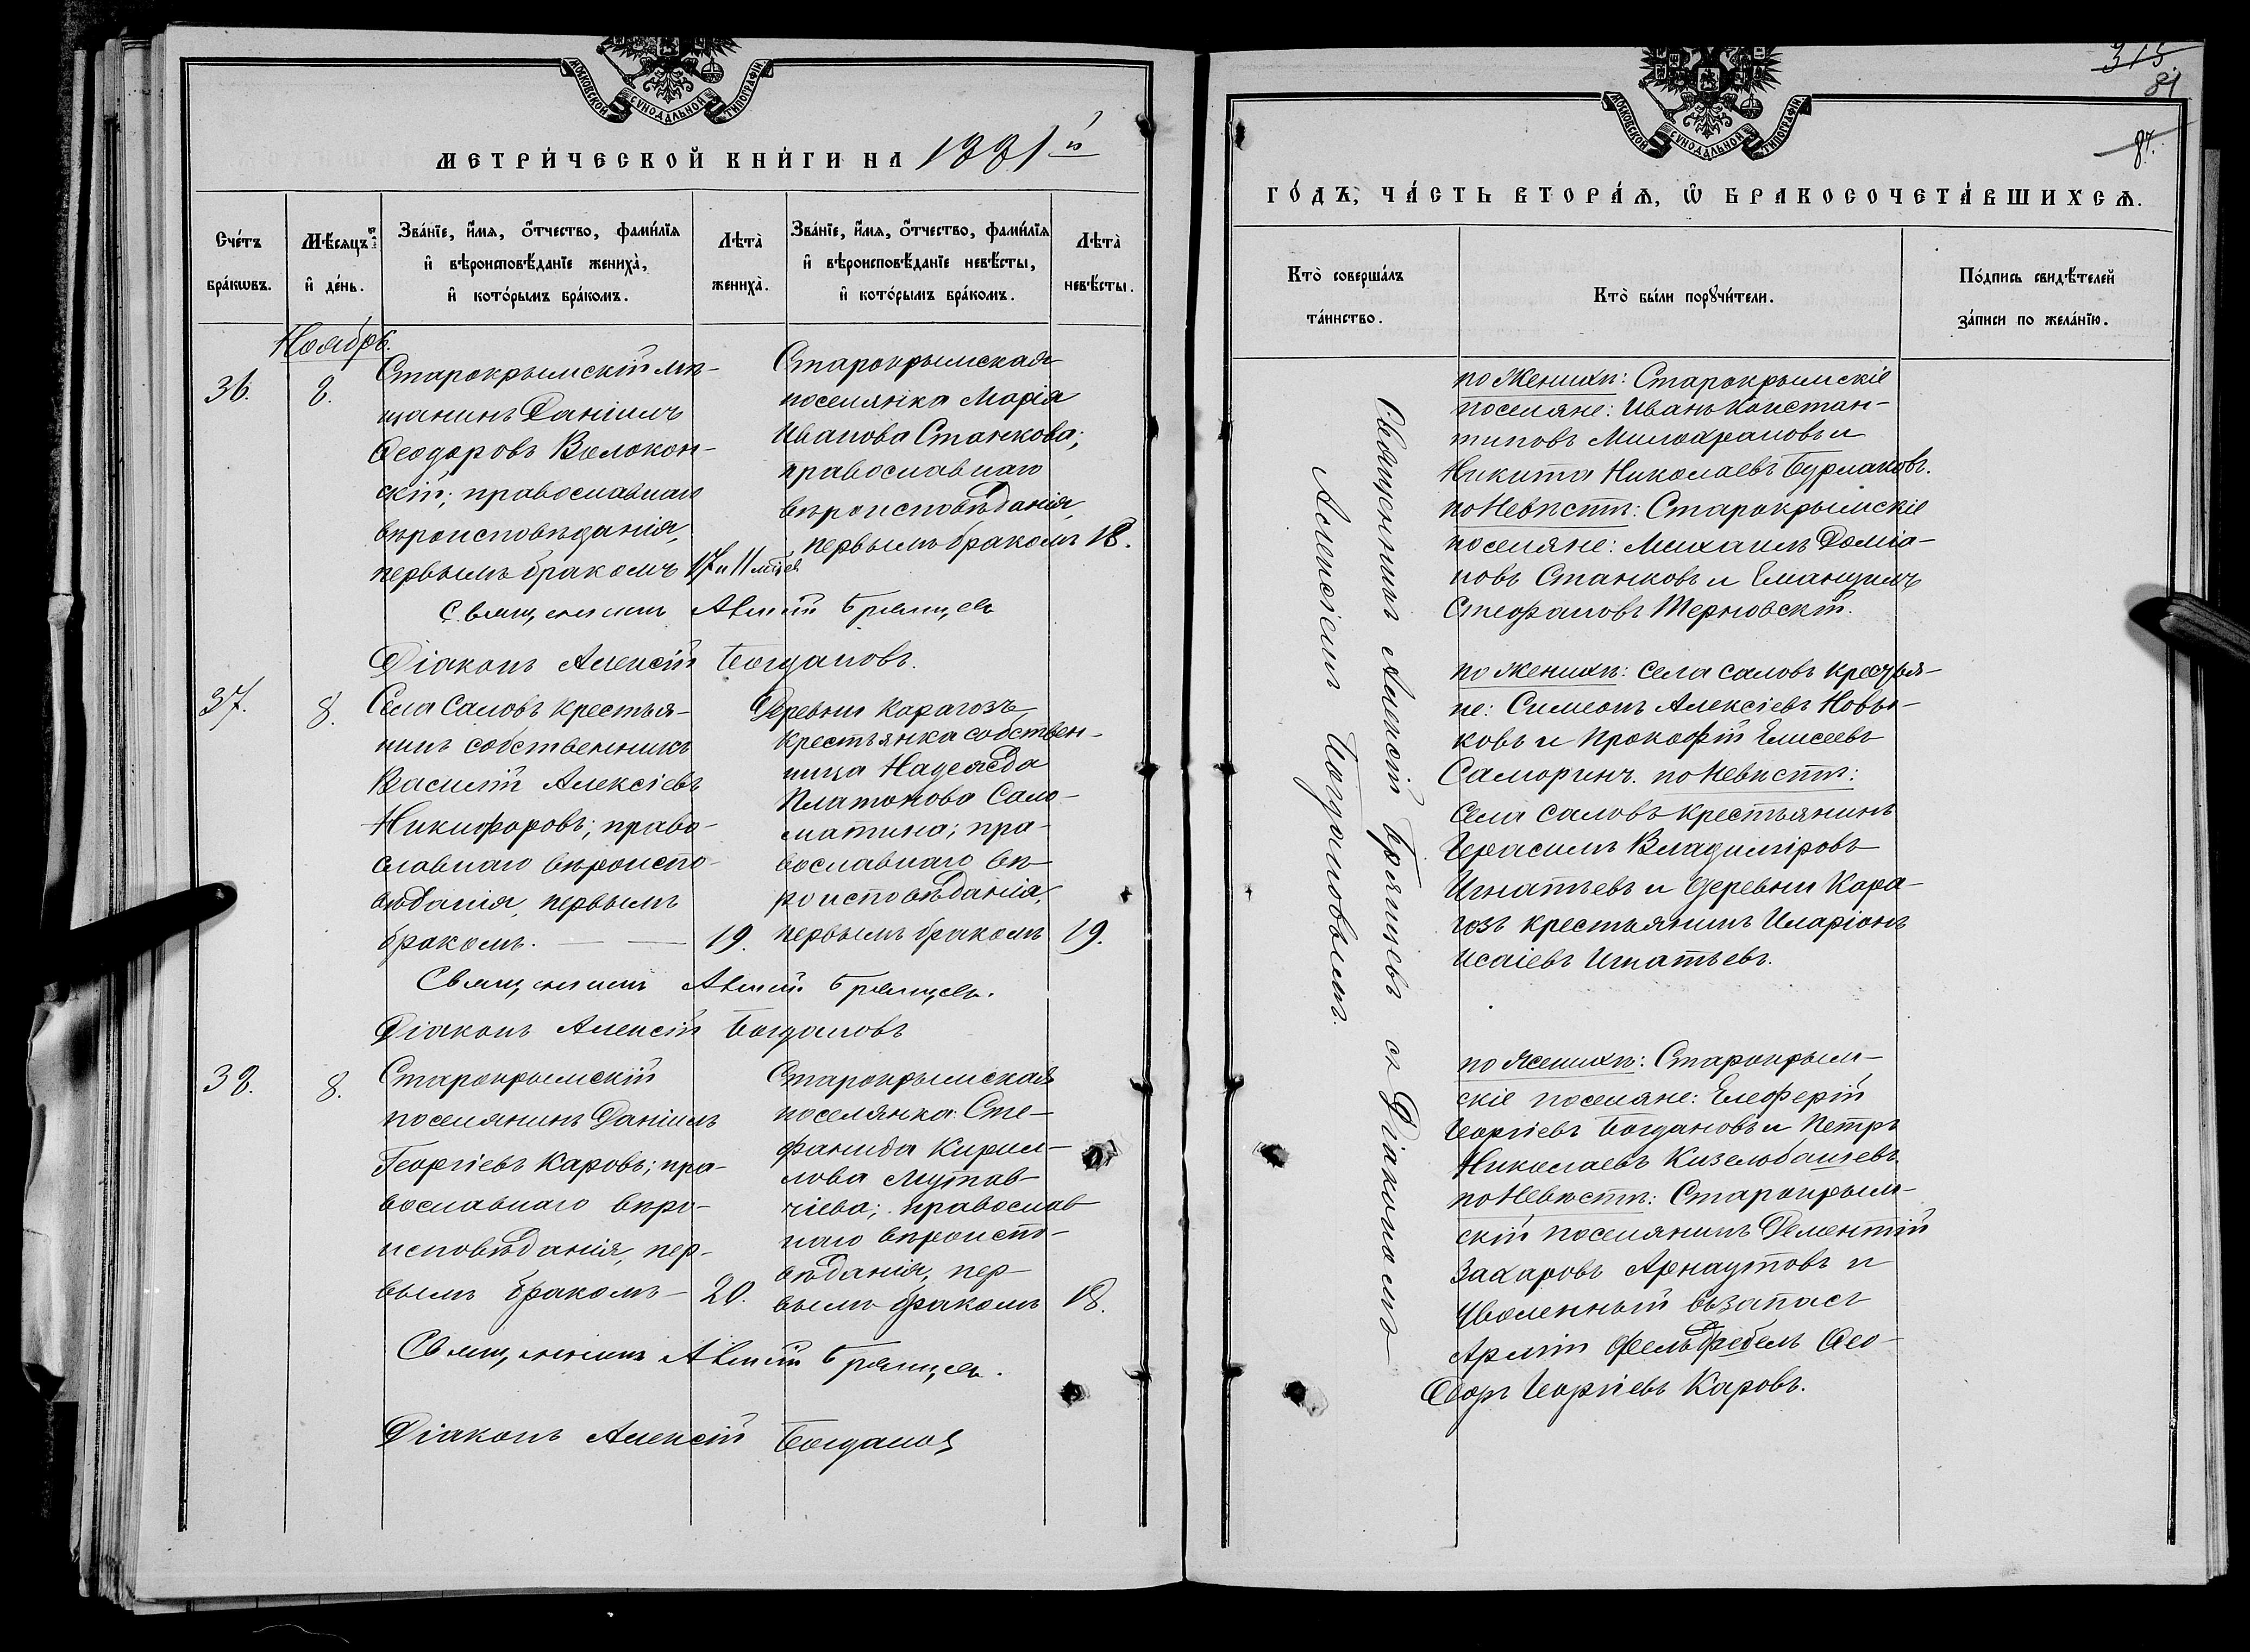 МОСКОВСКОЙ СУНОДАЛЬНОЙ ТИПОГРАФІИ
МЕТРИ́ЧЕСКОЙ КНИ́ГИ НА 1881й
Сче́тъ бра́кѡвъ.
Мѣ́сяцъ и҆ де́нь.
Зва́нїе, и҆́мя, ѻ҆́тчество, фами́лїя
и҆ вѣроисповѣ́данїе жениха̀,
и҆ кото́рымъ бра́комъ.
Лѣта̀ жениха̀.
Зва́нїе, и҆́мя, ѻ҆́тчество, фами́лїя
и҆ вѣроисповѣ́данїе невѣ́сты,
и҆ кото́рымъ бра́комъ.
Лѣта̀ невѣ́сты.
Ноябрь.
36.
8.
Старокрымскій мѣ-
щанинъ Даніилъ
Ѳеодоровъ Волокон-
скій; православнаго
вѣроисповѣданія,
первымъ бракомъ
17 и 11 мѣцев
Старокрымская
поселянка Марія
Иванова Станкова;
православнаго
вѣроисповѣданія,
первымъ бракомъ
18.
Священникъ Алексій Брянцевъ
Діаконъ Алексій Богдановъ.
37.
8.
Села Саловъ крестья-
нинъ собственникъ
Василій Алексіевъ
Никифоровъ; право-
славнаго вѣроиспо-
вѣданія, первымъ
бракомъ.
19.
Деревни Карагозъ
крестьянка собствен-
ница Надежда
Платонова Сало-
матина; пра-
вославнаго вѣ-
роисповѣданія,
первымъ бракомъ
19.
Священникъ Алексій Брянцевъ.
Діаконъ Алексій Богдановъ
38.
8.
Старокрымскій
поселянинъ Даніилъ
Георгіевъ Каровъ; пра-
вославнаго вѣро-
исповѣданія, пер-
вымъ бракомъ
20.
Старокрымская
поселянка: Сте-
фанида Кирил-
лова Мутав-
чіева; православ
наго вѣроиспо-
вѣданія, пер-
вымъ бракомъ
18.
Священникъ Алексій Брянцевъ.
Діаконъ Алексій Богдановъ
315.
81
87.
МОСКОВСКОЙ СУНОДАЛЬНОЙ ТИПОГРАФІИ
ГО́ДЪ, ЧА́СТЬ ВТОРА́Ѧ, Ѡ҆ БРАКОСОЧЕТА́ВШИХСѦ.
Кто̀ соверша́лъ
та́инство.
Кто̀ бы́ли порꙋчи́тели.
По́дпись свидѣ́телей
за́писи по жела́нїю.
Священникъ Алексій Брянцевъ съ Діакономъ
Алексіемъ Богдановымъ.
по Женихѣ: Старокрымскіе
поселяне: Иванъ Констан-
тиновъ Милохрановъ и
Никита Николаевъ Бурлаковъ.
по Невѣстѣ: Старокрымскіе
поселяне: Михаилъ Доміа-
новъ Станковъ и Емануилъ
Стефановъ Терновскій.
по Женихѣ: Села Саловъ крестья-
не: Симеонъ Алексіевъ Новы-
ковъ и Прокофій Елисеевъ
Саморинъ. по Невѣстѣ:
Села Саловъ крестьянинъ
Герасимъ Владиміровъ
Игнатьевъ и деревни Кара-
гозъ крестьянинъ Иларіонъ
Исаіевъ Игнатьевъ.
по Женихѣ: Старокрым-
скіе поселяне: Елеферій
Георгіевъ Богдановъ и Петръ
Николаевъ Кизелюбашевъ.
по Невѣстѣ: Старокрым-
скій поселянинъ Дементій
Захаровъ Арнаутовъ и
Уволенный въ запасъ
Арміи Фельдфебель Ѳео-
доръ Георгіевъ Каровъ.